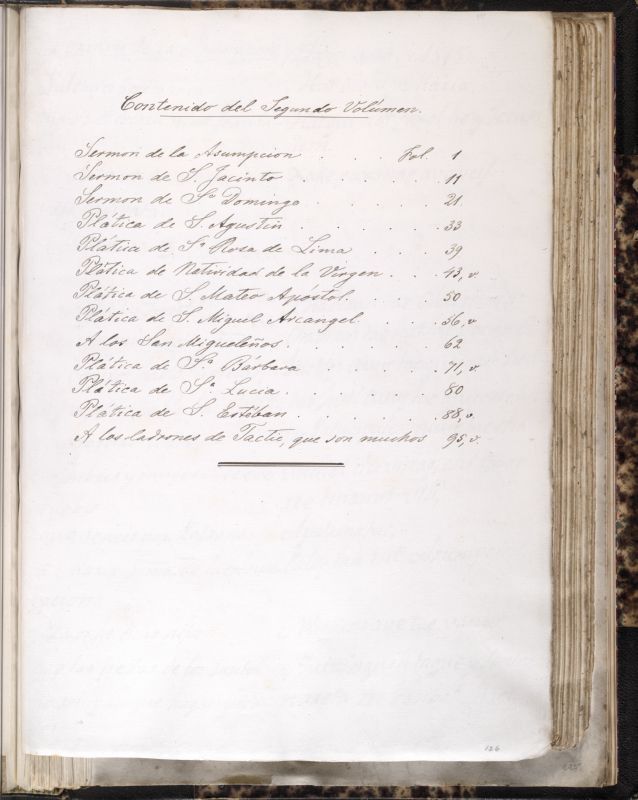 Contenido del Segundo Volúmen.
Sermon de la Asumpcion . . . Fol. 1
Sermon de S. Jacinto . . . . . 11
Sermon de Sto Domingo . . . . . 21
Plática de S. Agustin . . . . . 33
Plática de Sa Rosa de Lima . . . . 39
Plática de Natividad de la Virgen . . . 43, v.
Plática de S. Mateo Apóstol. . . . . 50
Plática de S. Miguel Arcangel. . . . 56, v
A los San Migueleños . . . . . . 62
Plática de Sa Bárbara . . . . . 71, v
Plática de Sa Lucia . . . . . . 80
Plática de S. Estéban . . . . . . 88, v.
A los ladrones de Tactic, que son muchos 95, v.
126
125